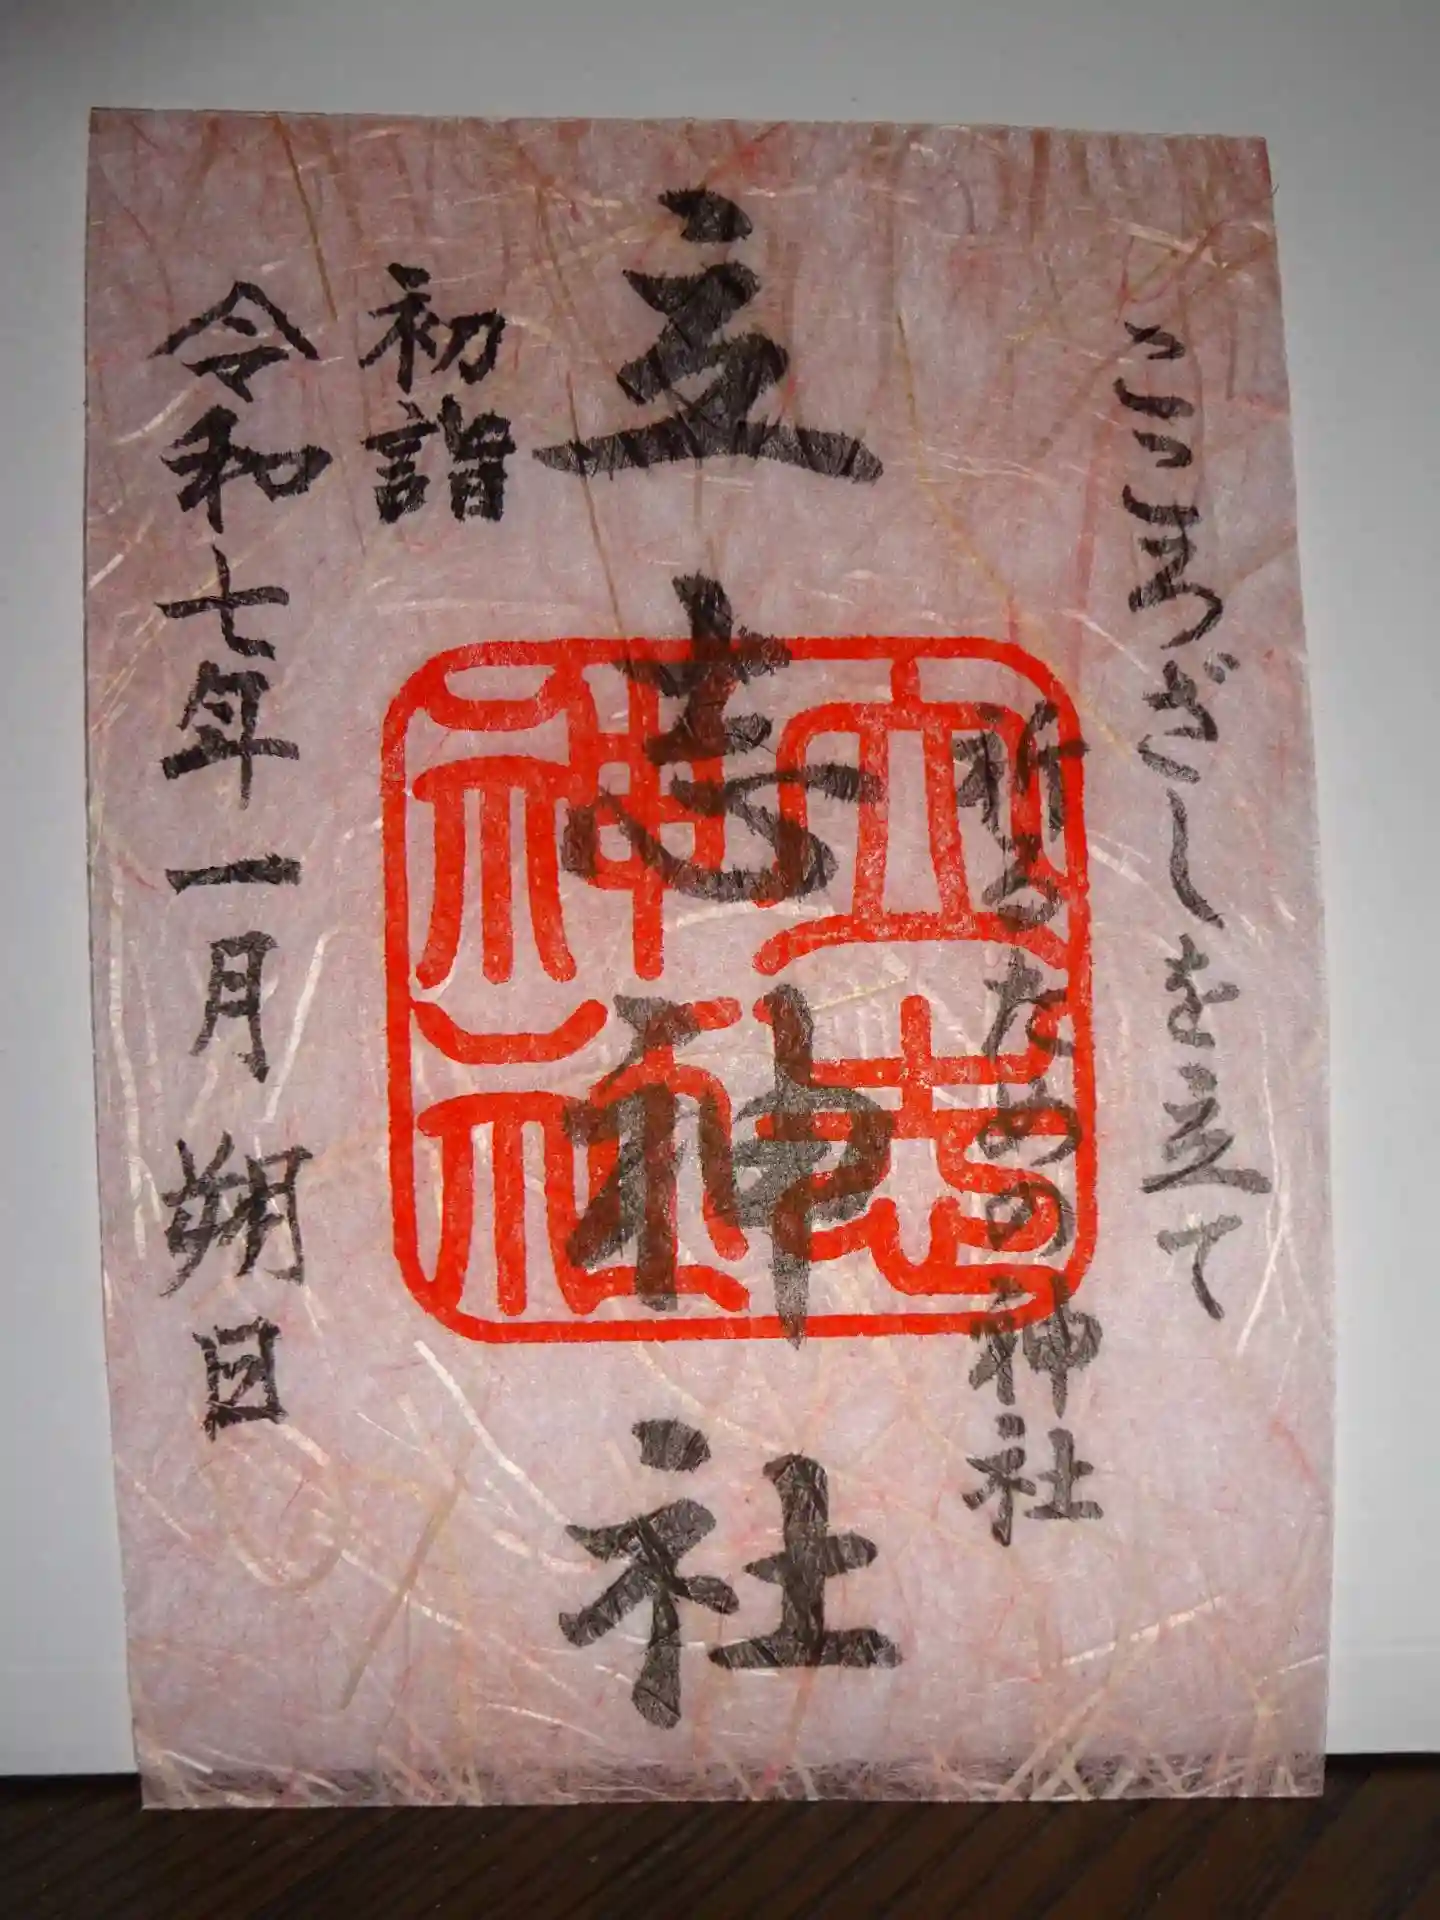 こころざしを立て
祈るための神社
立志神社
立志神社
初詣
令和七年一月朔日